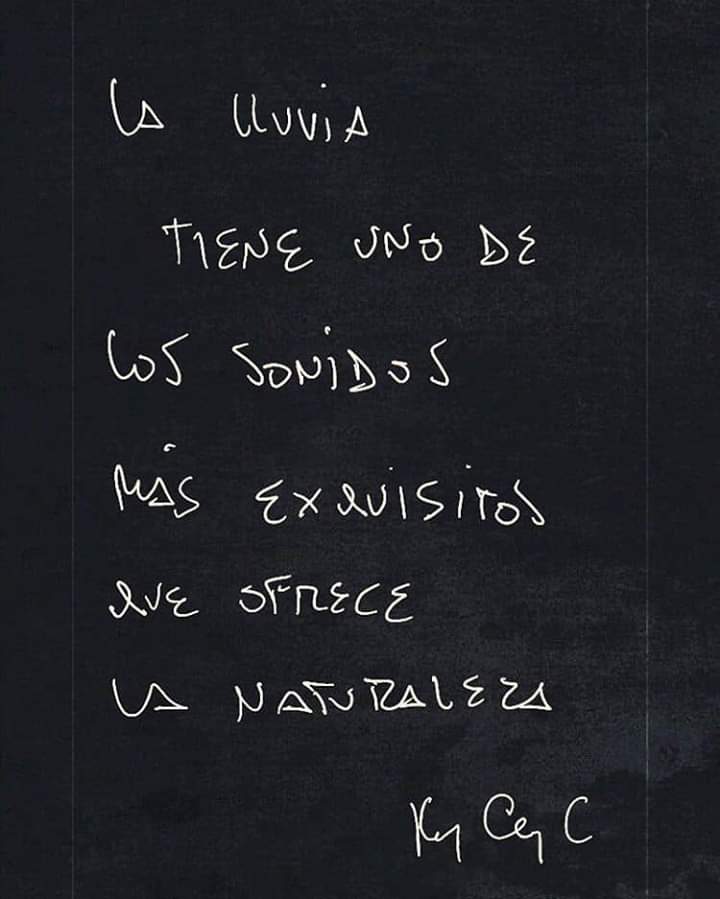 La lluvia
TIENE UNO DE
LOS SONIDOS
MÁS EXQUISITOS
QUE OFRECE
LA NATURALEZA